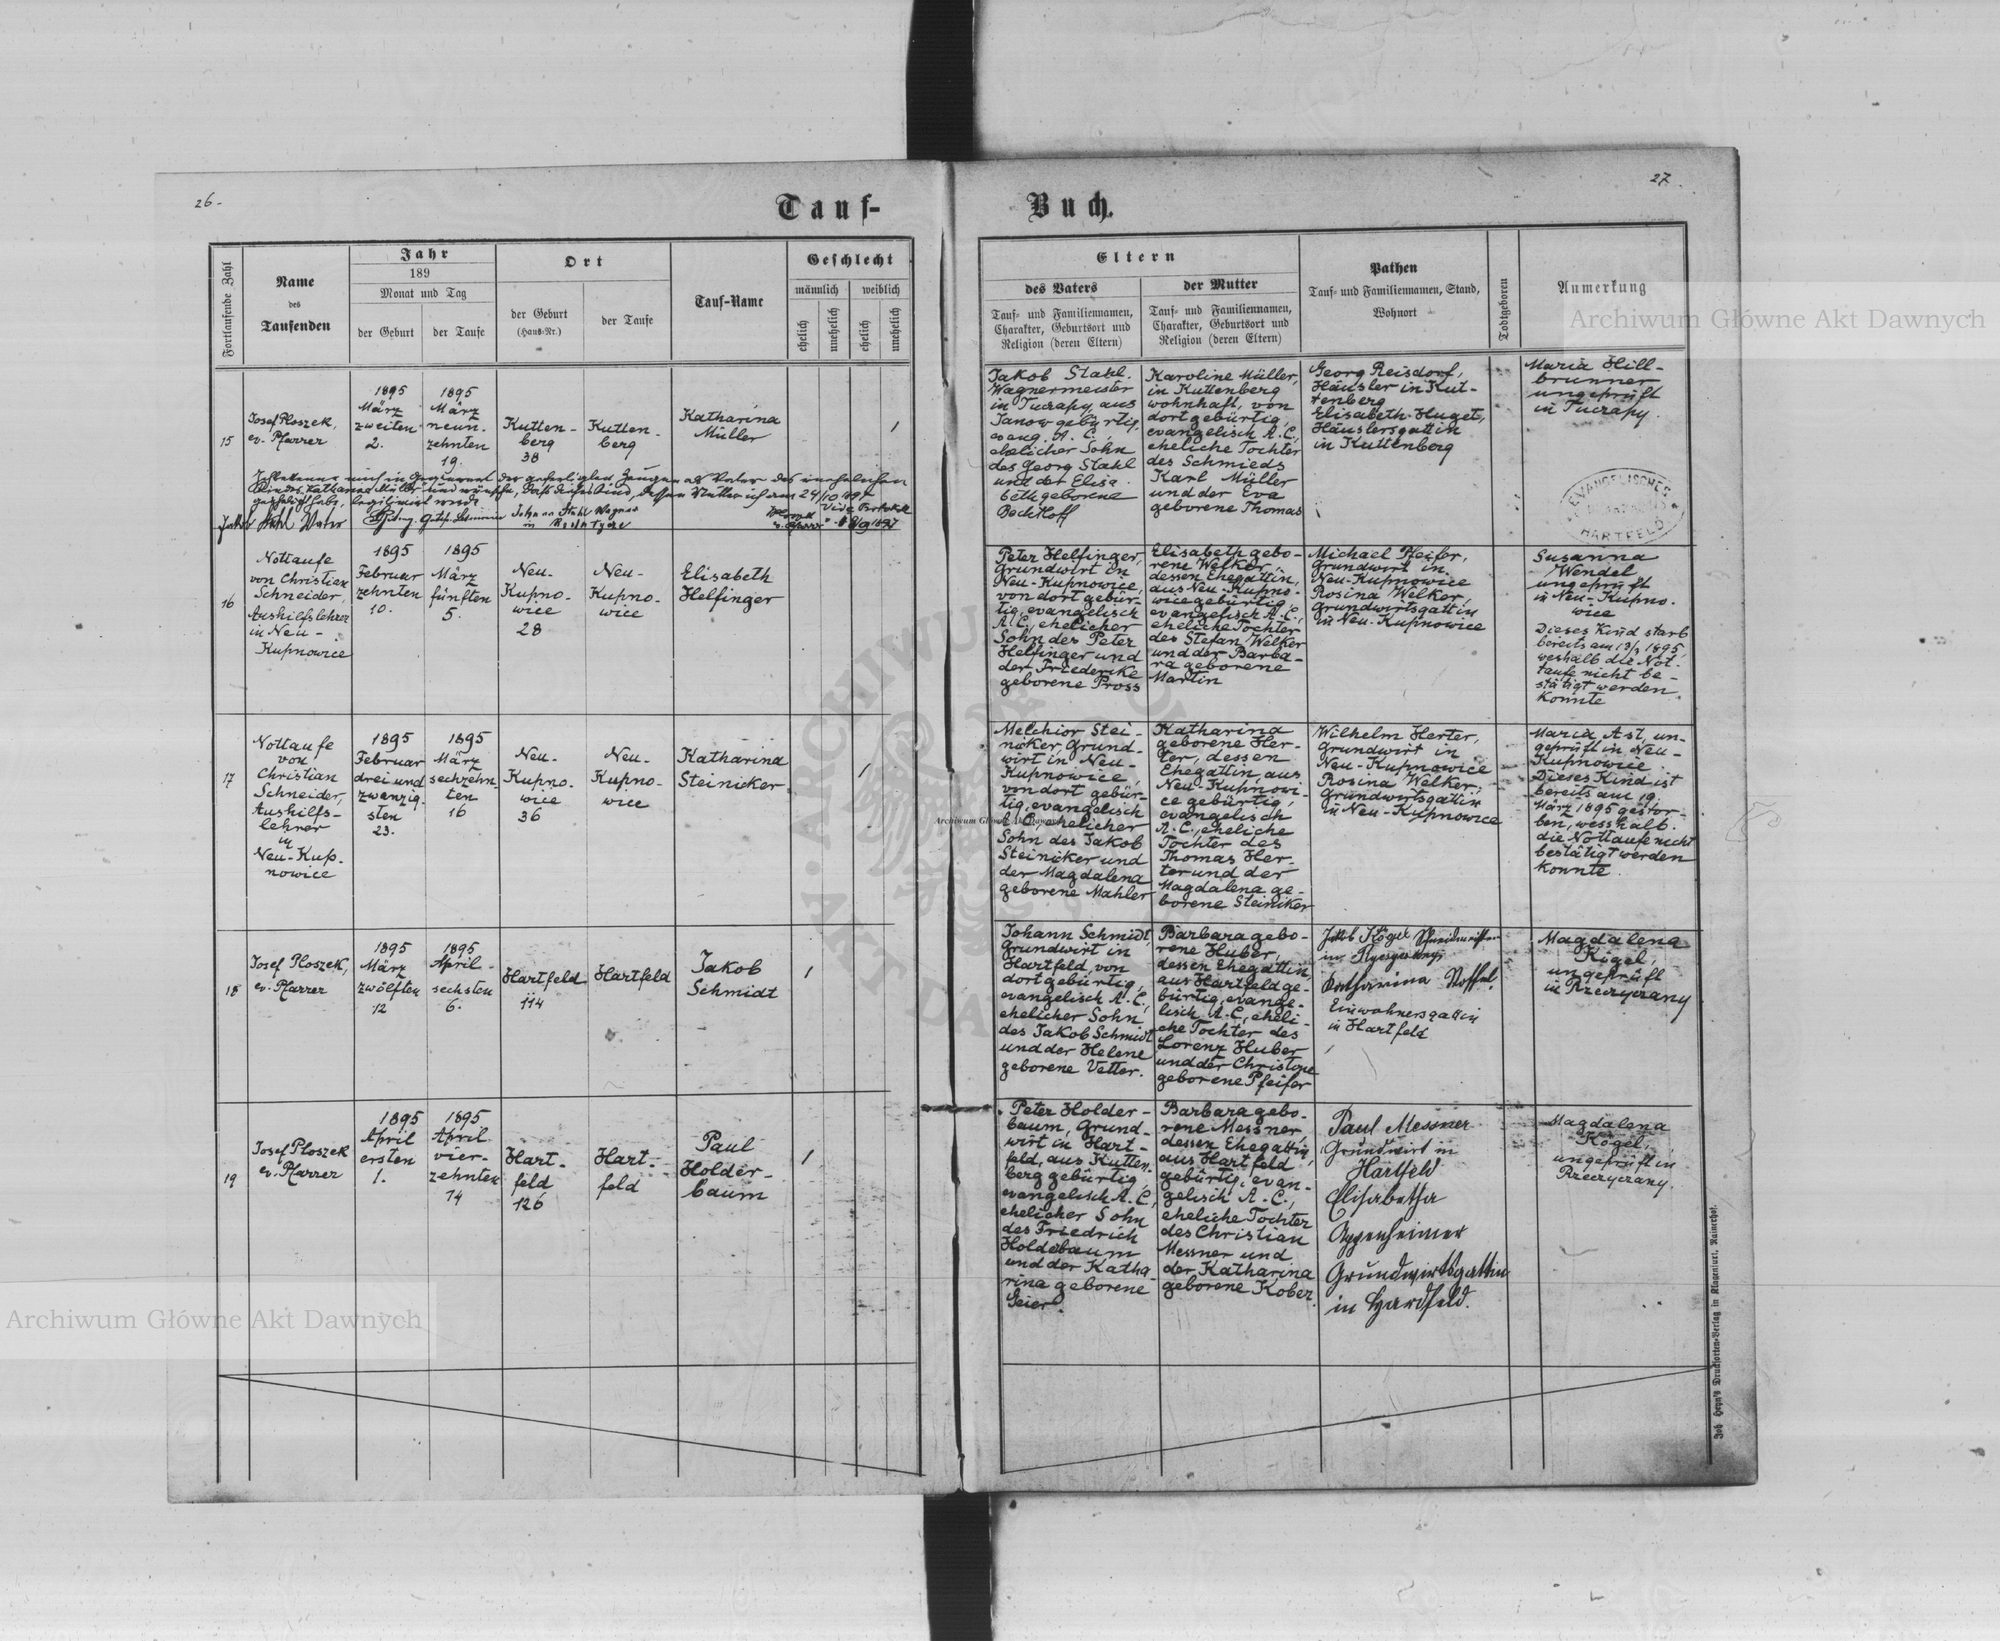 26.
27.
Tauf-
Buch.
Fortlaufende Zahl
Name
des
Taufenden
Jahr
189
Monat und Tag
der Geburt
der Taufe
Ort
der Geburt
(Haus-Nr.)
der Taufe
Tauf-Name
Geschlecht
männlich
weiblich
ehelich
unehelich
ehelich
unehelich
Eltern
des Vaters
Tauf- und Familiennamen,
Charakter, Geburtsort und
Religion (deren Eltern)
der Mutter
Tauf- und Familiennamen,
Charakter, Geburtsort und
Religion (deren Eltern)
Pathen
Tauf- und Familiennamen, Stand,
Wohnort
Todtgeboren
Anmerkung
Archiwum Główne Akt Dawnych
15
Josef Ploszek,
ev. Pfarrer
1895
März
zweiten
2.
1895
März
neun-
zehnten
19.
Kutten-
berg
38
Kutten-
berg
Katharina
Müller
/
Jakob Stahl
Wagnermeister
in Tucapy, aus
Janow gebürtig,
evang. A. C.,
ehelicher Sohn
des Georg Stahl
und der Elisa-
beth geborene
Bechtloff
Karoline Müller,
in Kuttenberg
wohnhaft, von
dort gebürtig,
evangelisch A. C.,
eheliche Tochter
des Schmieds
Karl Müller
und der Eva
geborene Thomas
Georg Reisdorf,
Häusler in Kut-
tenberg
Elisabeth Huget,
Häuslersgattin
in Kuttenberg
Maria Hill-
brunner
ungeprüft
in Tucapy.
EVANGELISCHES
PFARRAMT
HARTFELD
Jakob Stahl Vater
Johann Stahl Wagner
16
Nottaufe
von Christian
Schneider,
Aushilfslehrer
in Neu-
Kupnowice
1895
Februar
zehnten
10.
1895
März
fünften
5.
Neu-
Kupno-
wice
28
Neu-
Kupno-
wice
Elisabeth
Helfinger
Peter Helfinger,
Grundwirt in
Neu-Kupnowice,
von dort gebür-
tig, evangelisch
A. C., ehelicher
Sohn des Peter
Helfinger und
der Friederike
geborene Pross
Elisabeth gebo-
rene Welker,
dessen Ehegattin,
aus Neu-Kupno-
wice gebürtig,
evangelisch A. C.,
eheliche Tochter
des Stefan Welker
und der Barba-
ra geborene
Martin
Michael Pfeifer,
Grundwirt in
Neu-Kupnowice
Rosina Welker,
Grundwirtsgattin
in Neu-Kupnowice
Susanna
Wendel
ungeprüft
in Neu-Kupno-
wice
Dieses Kind starb
bereits am 13/3 1895,
weshalb die Not-
taufe nicht be-
stätigt werden
konnte
17
Nottaufe
von
Christian
Schneider,
Aushilfs-
lehrer
in
Neu-Kup-
nowice
1895
Februar
drei und
zwanzig-
sten
23.
1895
März
sechzehn-
ten
16
Neu-
Kupno-
wice
36
Neu-
Kupno-
wice
Katharina
Steiniker
/
Melchior Stei-
niker, Grund-
wirt in Neu-
Kupnowice,
von dort gebür-
tig, evangelisch
A. C., ehelicher
Sohn des Jakob
Steiniker und
der Magdalena
geborene Mahler
Katharina
geborene Her-
ter, dessen
Ehegattin, aus
Neu-Kupnowi-
ce gebürtig,
evangelisch
A. C., eheliche
Tochter des
Thomas Her-
ter und der
Magdalena ge-
borene Steiniker
Wilhelm Herter,
Grundwirt in
Neu-Kupnowice
Rosina Welker,
Grundwirtsgattin
in Neu-Kupnowice
Maria Ast, un-
geprüft in Neu-
Kupnowice
Dieses Kind ist
bereits am 19.
März 1895 gestor-
ben, wesshalb
die Nottaufe nicht
bestätigt werden
konnte.
Archiwum Główne Akt Dawnych
18
Josef Ploszek,
ev. Pfarrer
1895
März
zwölften
12
1895
April
sechsten
6.
Hartfeld
114
Hartfeld
Jakob
Schmidt
/
Johann Schmidt
Grundwirt in
Hartfeld, von
dort gebürtig,
evangelisch A. C.,
ehelicher Sohn
des Jakob Schmidt
und der Helene
geborene Vetter.
Barbara gebo-
rene Huber,
dessen Ehegattin,
aus Hartfeld ge-
bürtig, evange-
lisch A. C., eheli-
che Tochter des
Lorenz Huber
und der Christine
geborene Pfeifer
Jakob Kögel
Katharina Stoffel
Einwohnersgattin
in Hartfeld
Magdalena
Kögel,
ungeprüft
in Rzeczyczany
19
Josef Ploszek
ev. Pfarrer
1895
April
ersten
1.
1895
April
vier-
zehnten
14
Hart-
feld
126
Hart-
feld
Paul
Holder-
baum
/
Peter Holder-
baum, Grund-
wirt in Hart-
feld, aus Kutten-
berg gebürtig,
evangelisch A. C.,
ehelicher Sohn
des Friedrich
Holdebaum
und der Katha-
rina geborene
Geier.
Barbara gebo-
rene Messner
dessen Ehegattin,
aus Hartfeld
gebürtig, evan-
gelisch A. C.,
eheliche Tochter
des Christian
Messner und
der Katharina
geborene Kober.
Paul Messner
Grundwirt in
Hartfeld
Elisabetha
Oppenheimer
Grundwirtsgattin
in Hardfeld.
Magdalena
Kögel,
ungeprüft in
Rzeczyczany.
Joh. Heyn's Drucksorten-Verlag in Klagenfurt, Rainerhof.
Archiwum Główne Akt Dawnych